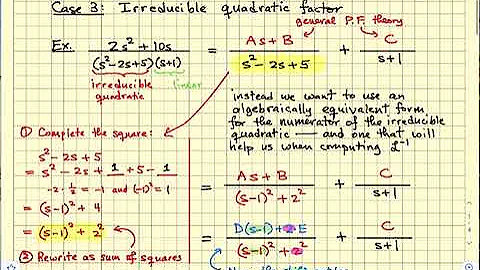 Case 3: Irreducible quadratic factor
general P.F. theory
Ex. 2s² + 10s / (s²-2s+5)(s+1) = As+B / s²-2s+5 + C / s+1
irreducible quadratic
linear
instead we want to use an
algebraically equivalent form
for the numerator of the irreducible
quadratic — and one that will
help us when computing ℒ⁻¹
① Complete the square:
s²-2s+5
= s²-2s+ 1 +5- 1
-2·½=-1 and (-1)²=1
= (s-1)²+4
= (s-1)²+2²
② Rewrite as sum of squares
= As+B / (s-1)²+2² + C / s+1
= D(s-1)+2E / (s-1)²+2² + C / s+1